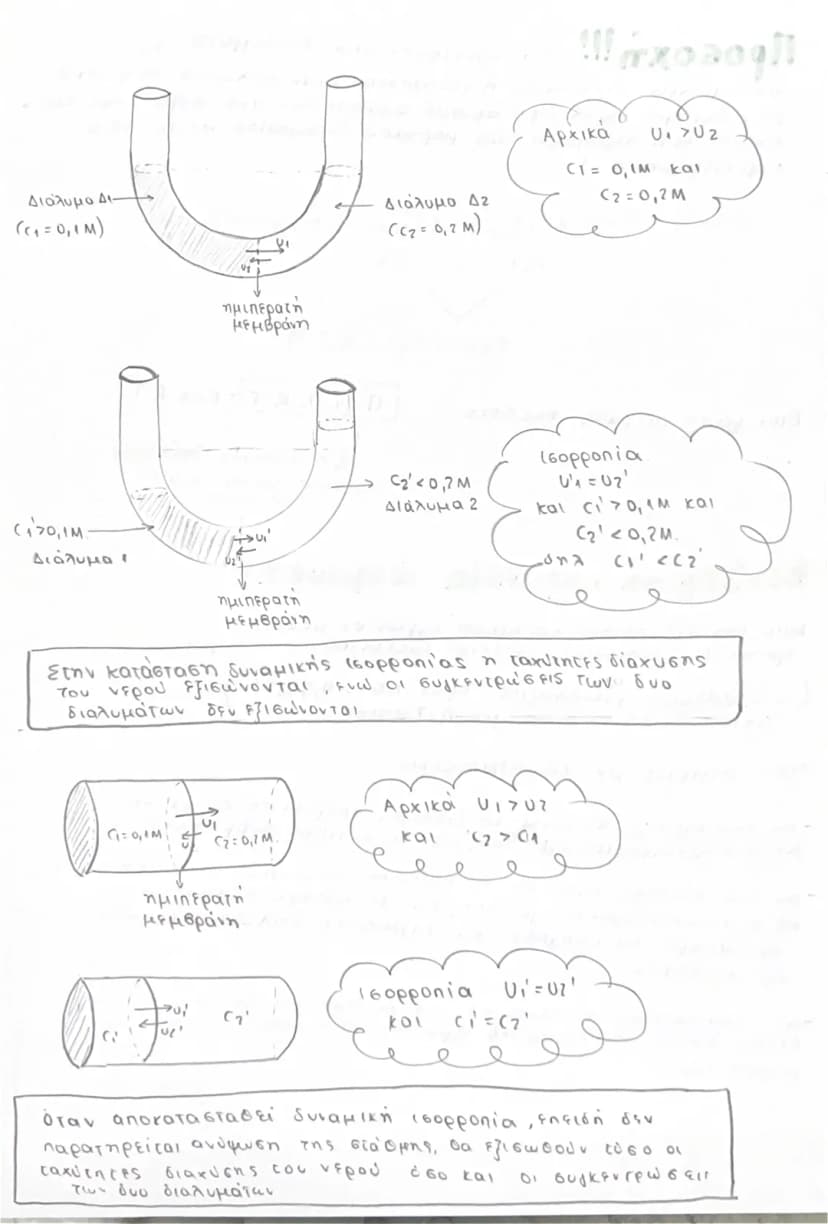 Προσοχή!!!
Αρχικά υ1 > υ2
c1 = 0,1M και
c2 = 0,2M
Διάλυμα Δ1
(c1 = 0,1M)
Διάλυμα Δ2
(c2 = 0,2M)
υ1
υ2
ημιπερατή
μεμβράνη
ισορροπία
υ'1 = υ2'
και c1' > 0,1M και
c2' < 0,2M.
δηλ c1' < c2'
c2' < 0,2M
Διάλυμα 2
c1' > 0,1M
Διάλυμα 1
υ1'
υ2'
ημιπερατή
μεμβράνη
Στην κατάσταση δυναμικής ισορροπίας η ταχύτητες διάχυσης
του νερού εξισώνονται, ενώ οι συγκεντρώσεις των δυο
διαλυμάτων δεν εξισώνονται
Αρχικά υ1 > υ2
και c2 > c1
c1 = 0,1M
υ1
υ
c2 = 0,2M.
ημιπερατή
μεμβράνη
ισορροπία υ1' = υ2'
και c1' = c2'
c1'
υ1'
υ2'
c2'
όταν αποκατασταθεί δυναμική ισορροπία, επειδή δεν
παρατηρείται ανύψωση της στάθμης, θα εξισωθούν τόσο οι
ταχύτητες διαχύσης του νερού όσο και οι συγκεντρώσεις
των δυο διαλυμάτων